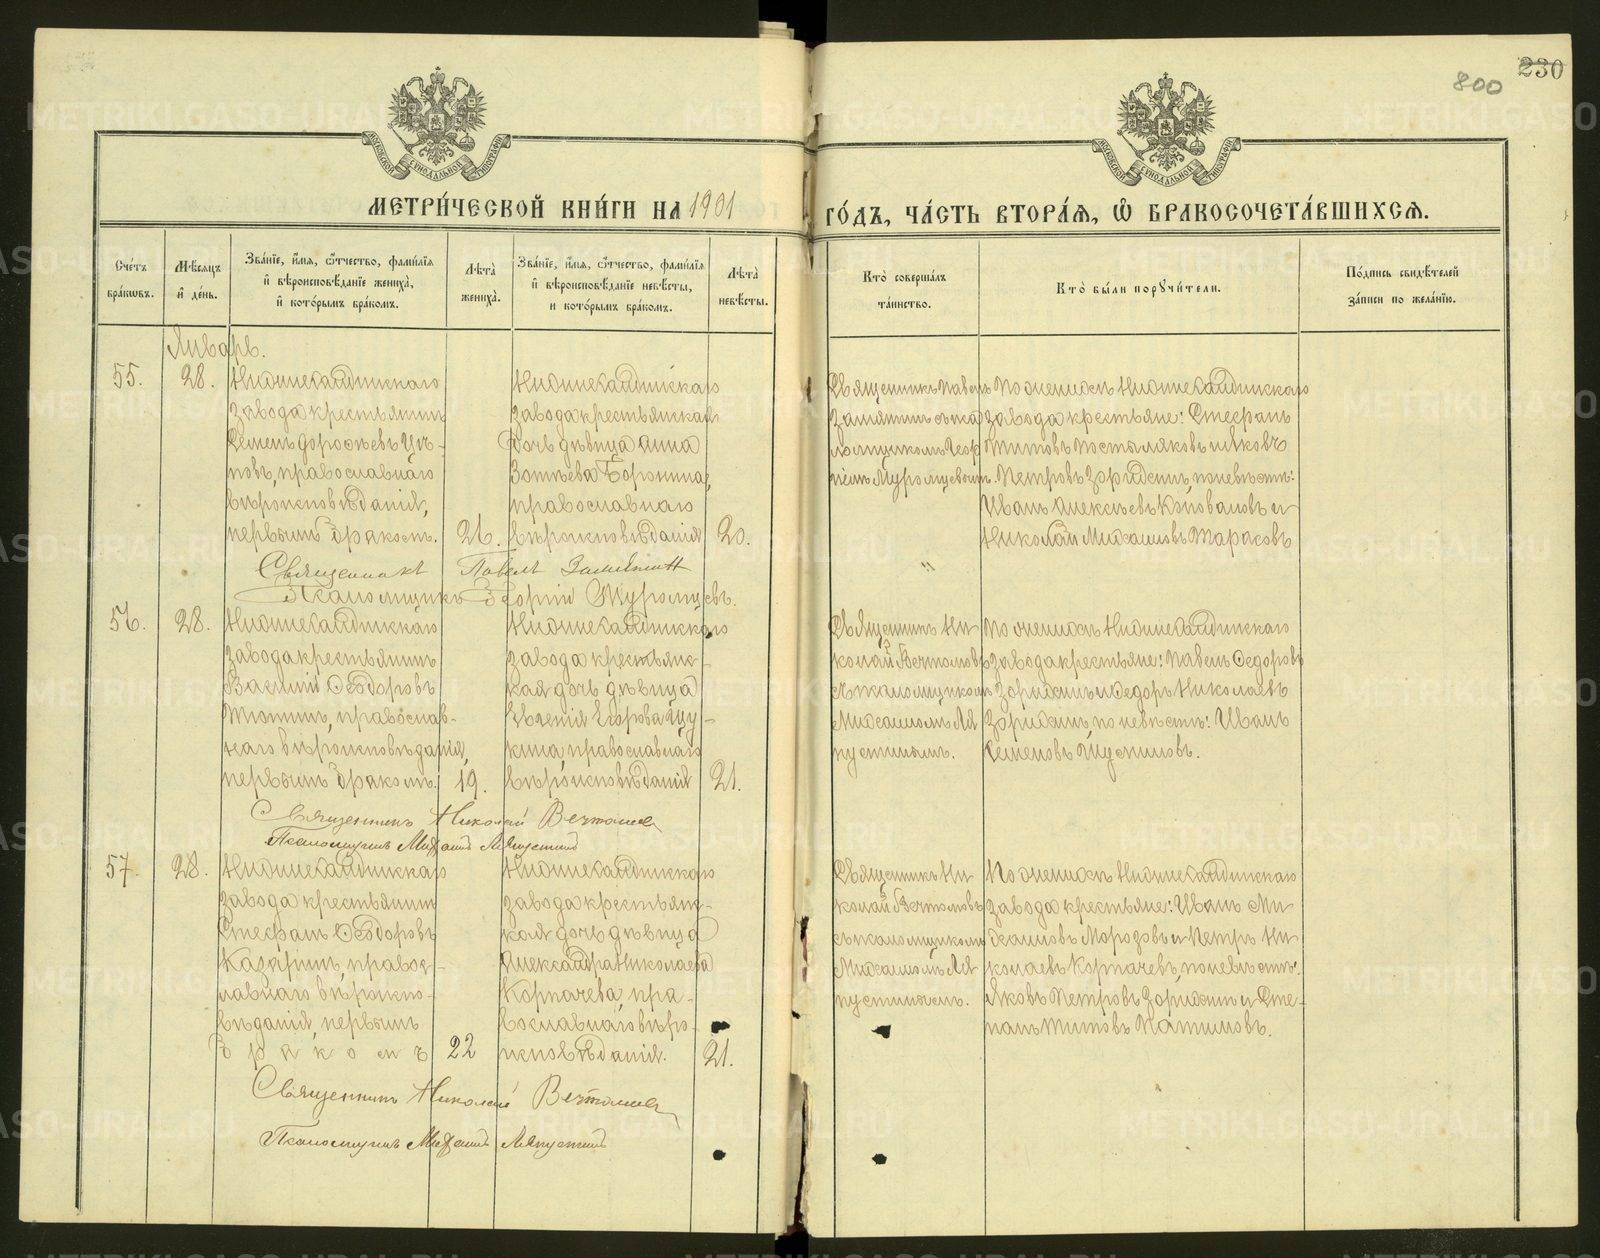 230
800
МОСКОВСКОЙ СУНОДАЛЬНОЙ ТИПОГРАФІИ
МОСКОВСКОЙ СУНОДАЛЬНОЙ ТИПОГРАФІИ
МЕТРИ́ЧЕСКОЙ КНИ́ГИ НА 1901 ГО́ДЪ, ЧА́СТЬ ВТОРА́Я, Ѡ҆ БРАКОСОЧЕТА́ВШИХСЯ.
Сче́тъ
бра́кωвъ.
Мѣ́сяцъ
и҆ де́нь.
Зва́нїе, и҆́мя, ѻ҆́тчество, фами́лїя
и҆ вѣроисповѣ́данїе жениха̀,
и҆ кото́рымъ бра́комъ.
Лѣ́та
жениха̀.
Зва́нїе, и҆́мя, ѻ҆́тчество, фами́лїя
и҆ вѣроисповѣ́данїе невѣ́сты,
и кото́рымъ бра́комъ.
Лѣ́та
невѣ́сты.
Кто̀ соверша́лъ
та́инство.
Кто̀ бы́ли порꙋчи́тели.
По́дпись свидѣ́телей
за́писи по жела́нїю.
Январь.
55.
28.
Нижнесалдинскаго
завода крестьянинъ
Семенъ Дороѳеевъ Цѣ-
повъ, православнаго
вѣроисповѣданія,
первымъ бракомъ.
26.
Нижнесалдинскаго
завода крестьянская
дочь дѣвица Анна
Зотѣева Боронина,
православнаго
вѣроисповѣданія
20.
Священникъ Павелъ
Замятинъ съ пса
ломщикомъ Геор
гіемъ Муромцевымъ.
По женихѣ: Нижнесалдинскаго
завода крестьяне: Стефанъ
Титовъ Постыляковъ и Яковъ
Петровъ Зорихинъ, по невѣстѣ:
Иванъ Алексѣевъ Коноваловъ и
Николай Михаиловъ Тарасовъ
Священникъ Павелъ Замятинъ
Псаломщикъ Георгій Муромцевъ.
56.
28.
Нижнесалдинскаго
завода крестьянинъ
Василій Ѳеодоровъ
Тютинъ, православ-
наго вѣроисповѣданія,
первымъ бракомъ.
19.
Нижнесалдинскаго
завода крестьянс-
кая дочь дѣвица
Евгенія Егорова Щу-
кина, православнаго
вѣроисповѣданія
21.
Священникъ Ни
колай Вечтомовъ
съ псаломщикомъ
Михаиломъ Ля
пустинымъ.
По женихѣ: Нижнесалдинскаго
завода крестьяне: Павелъ Ѳедоровъ
Зорихинъ и Ѳедоръ Николаевъ
Зорихинъ, по невѣстѣ: Иванъ
Семеновъ Шустиковъ.
Священникъ Николай Вечтомовъ
Псаломщикъ Михаилъ Ляпустинъ
57.
28.
Нижнесалдинскаго
завода крестьянинъ
Стефанъ Ѳеодоровъ
Казаринъ, правос-
лавнаго вѣроиспо-
вѣданія, первымъ
бракомъ
22
Нижнесалдинскаго
завода крестьянс-
кая дочь дѣвица
Александра Николаева
Корпачева, пра-
вославнаго вѣро-
исповѣданія.
21.
Священникъ Ни
колай Вечтомовъ
съ псаломщикомъ
Михаиломъ Ля
пустинымъ.
По женихѣ: Нижнесалдинскаго
завода крестьяне: Иванъ Ми
хаиловъ Морозовъ и Петръ Ни
колаевъ Корпачевъ, по невѣстѣ:
Яковъ Петровъ Зорихинъ и Сте-
панъ Титовъ Патиновъ.
Священникъ Николай Вечтомовъ
Псаломщикъ Михаилъ Ляпустинъ
METRIKI.GASO-URAL.RU